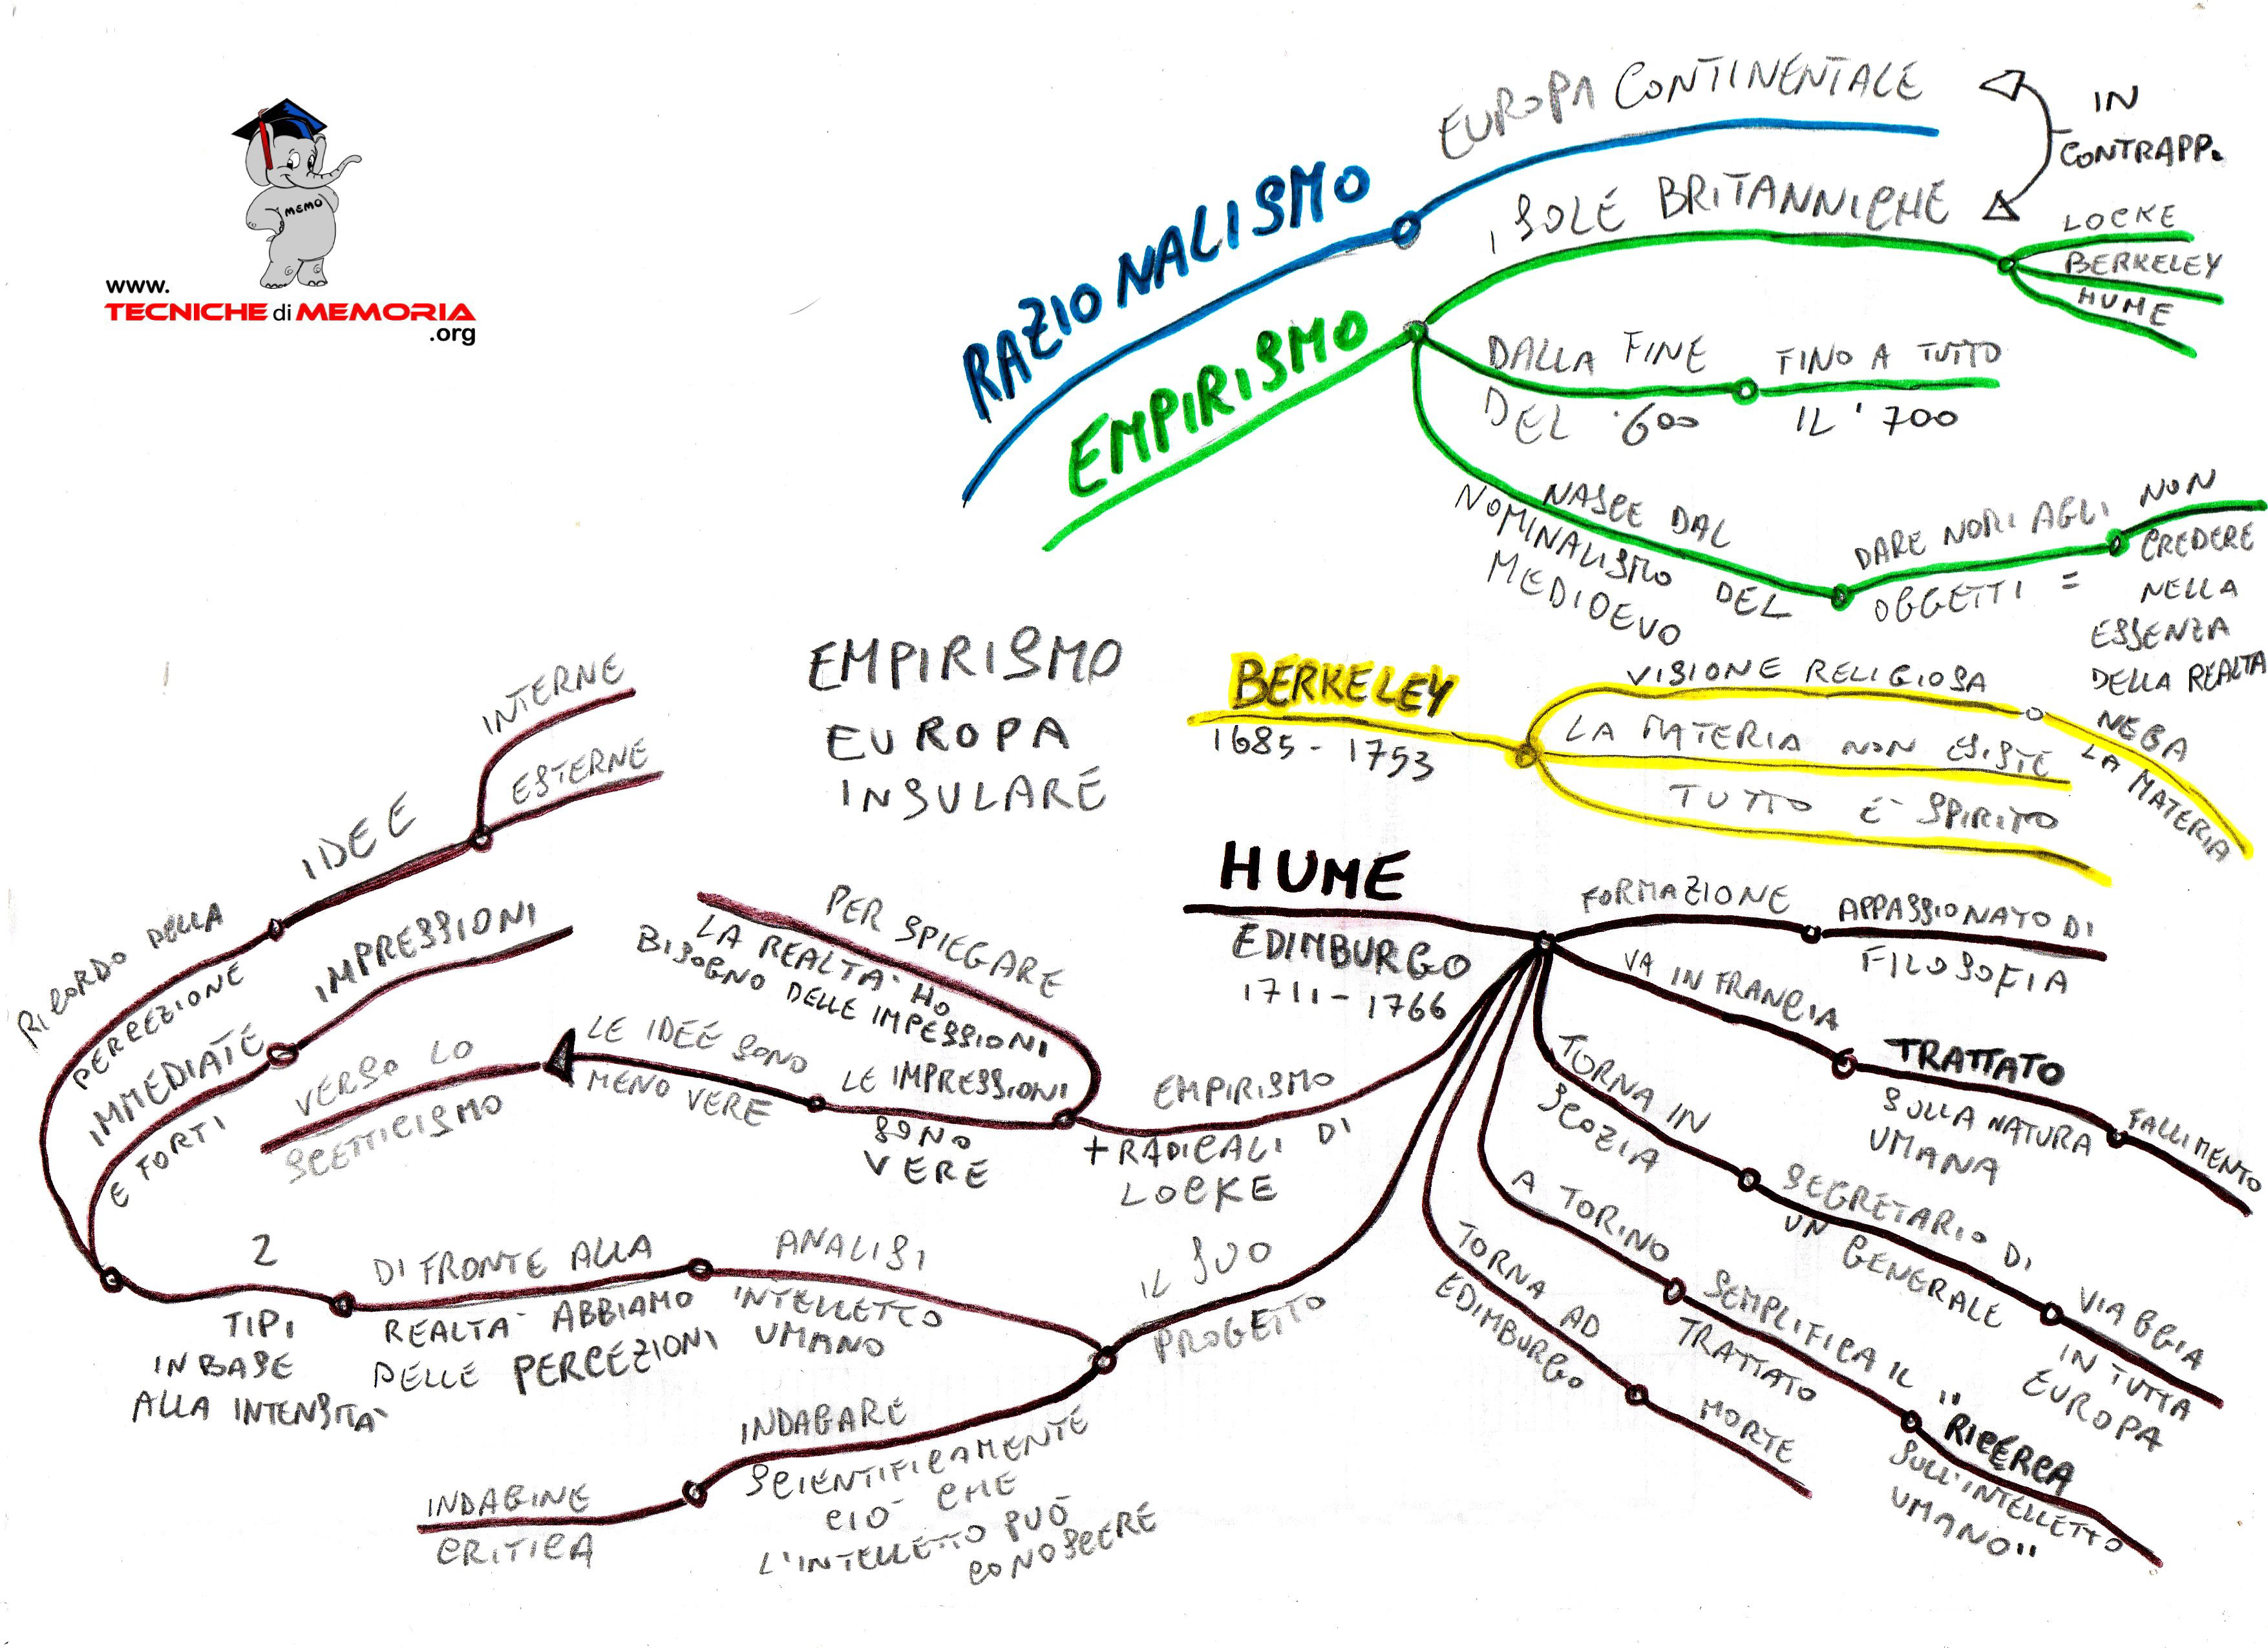 MEMO
www.
TECNICHE di MEMORIA
.org
RAZIONALISMO
EUROPA CONTINENTALE
IN
CONTRAPP.
EMPIRISMO
ISOLE BRITANNICHE
LOCKE
BERKELEY
HUME
DALLA FINE
DEL '600
FINO A TUTTO
IL '700
NASCE DAL
NOMINALISMO DEL
MEDIOEVO
DARE NOMI AGLI
OGGETTI =
NON
CREDERE
NELLA
ESSENZA
DELLA REALTA
EMPIRISMO
EUROPA
INSULARE
BERKELEY
1685 - 1753
VISIONE RELIGIOSA
NEGA
LA MATERIA
LA MATERIA NON ESISTE
TUTTO E' SPIRITO
HUME
EDIMBURGO
1711 - 1766
FORMAZIONE
APPASSIONATO DI
FILOSOFIA
VA IN FRANCIA
TRATTATO
SULLA NATURA
UMANA
FALLIMENTO
TORNA IN
SCOZIA
SEGRETARIO DI
UN GENERALE
VIAGGIA
IN TUTTA
EUROPA
A TORINO
SEMPLIFICA IL
TRATTATO
"RICERCA
SULL'INTELLETTO
UMANO"
TORNA AD
EDIMBURGO
MORTE
EMPIRISMO
+ RADICALI DI
LOCKE
PER SPIEGARE
LA REALTA' HO
BISOGNO DELLE IMPESSIONI
LE IMPRESSIONI
SONO
VERE
LE IDEE SONO
MENO VERE
VERSO LO
SCETTICISMO
IL SUO
PROGETTO
ANALISI
INTELLETTO
UMANO
DI FRONTE ALLA
REALTA' ABBIAMO
DELLE PERCEZIONI
2
TIPI
IN BASE
ALLA INTENSITA'
IMMEDIATE
E FORTI
IMPRESSIONI
RICORDO DELLA
PERCEZIONE
IDEE
INTERNE
ESTERNE
INDAGARE
SCIENTIFICAMENTE
CIO' CHE
L'INTELLETTO PUÒ
CONOSCERE
INDAGINE
CRITICA